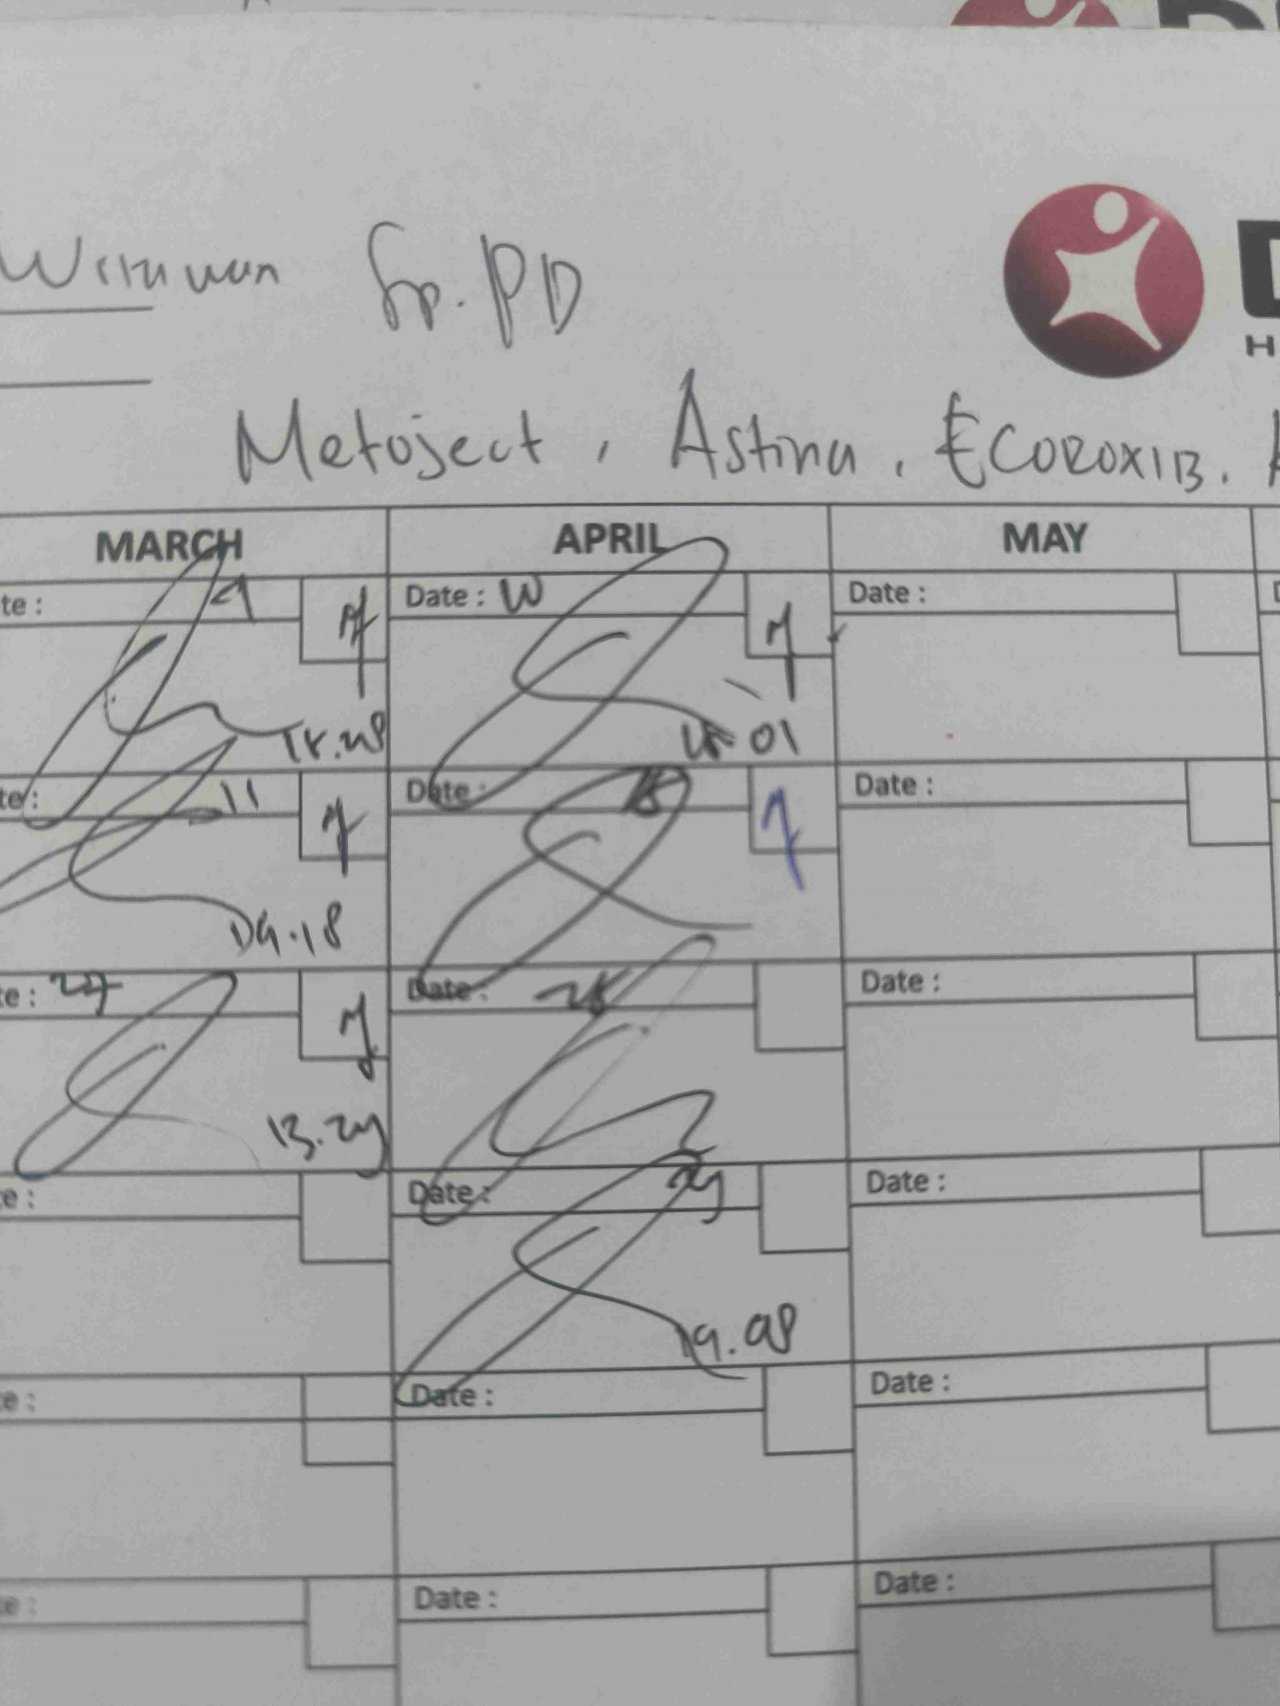 Sp.PD
H
Metoject, Astina, Ecoroxib.
MARCH APRIL MAY
te: 9 Date: Date:
01
te: 11 Date: 18 Date:
09.18
e: 27 Date: 28 Date:
13.29
e: Date: 29 Date:
19.08
e: Date: Date:
e: Date: Date: